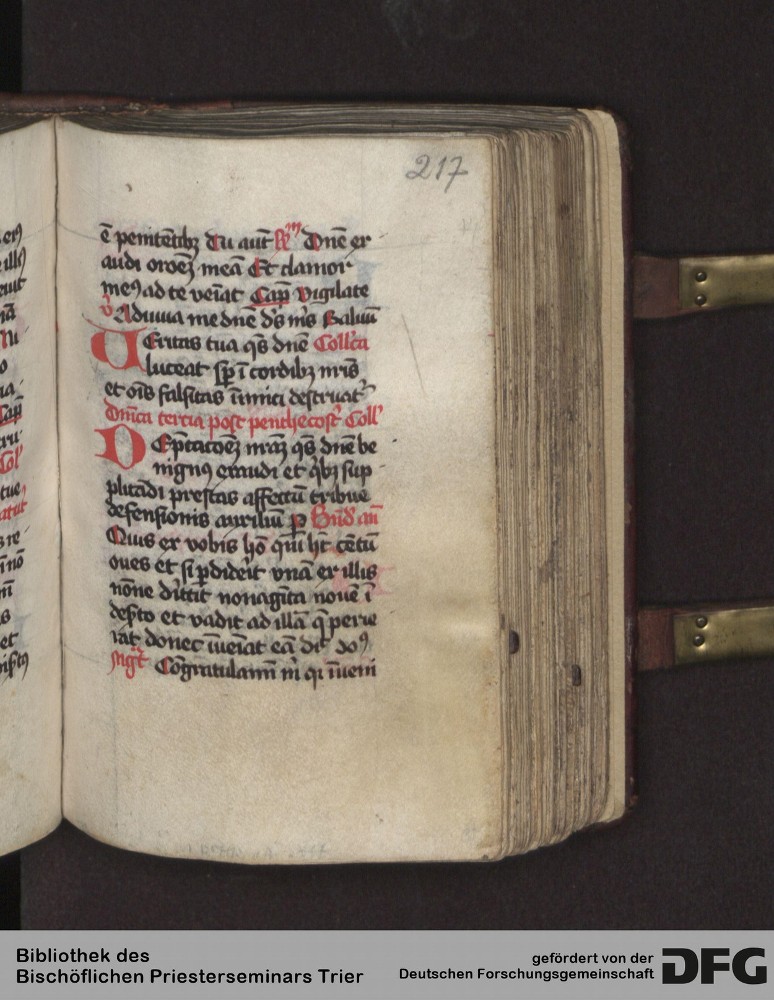 217
ē penitētibꝫ Tu aūt R̄m Dn̄e ex
audi orōeꝫ meā Et clamor
meꝰ ad te veīat Cap̄ Vigilate
v̊ Adiuua me dn̄e d's m's Saluū
Veritas tua qs̄ dn̄e Coll'ca
luceat sp̄ ī cordibꝫ nr̄is
et oīs falsitas īimici destruat'
Dn̄ica tercia post penthecost' Coll'
Dep̄cacōeꝫ nr̄aꝫ qs̄ dn̄e be
nignꝰ exaudi et qͥbꝫ sup
plicādi prestas affectū tribue
defensionis auxiliū p
Quis ex vobis hō qui hꝫ cētū
oues et si pdiderit vnā ex illis
nōne dīttit nonagīta nouē ī
des'to et vadit ad illā q̄ perie
rat donec īueīat eā dic' doꝰ
Cōgratulamī m̄ qꝛ īueni
Bibliothek des
Bischöflichen Priesterseminars Trier
gefördert von der
Deutschen Forschungsgemeinschaft
DFG